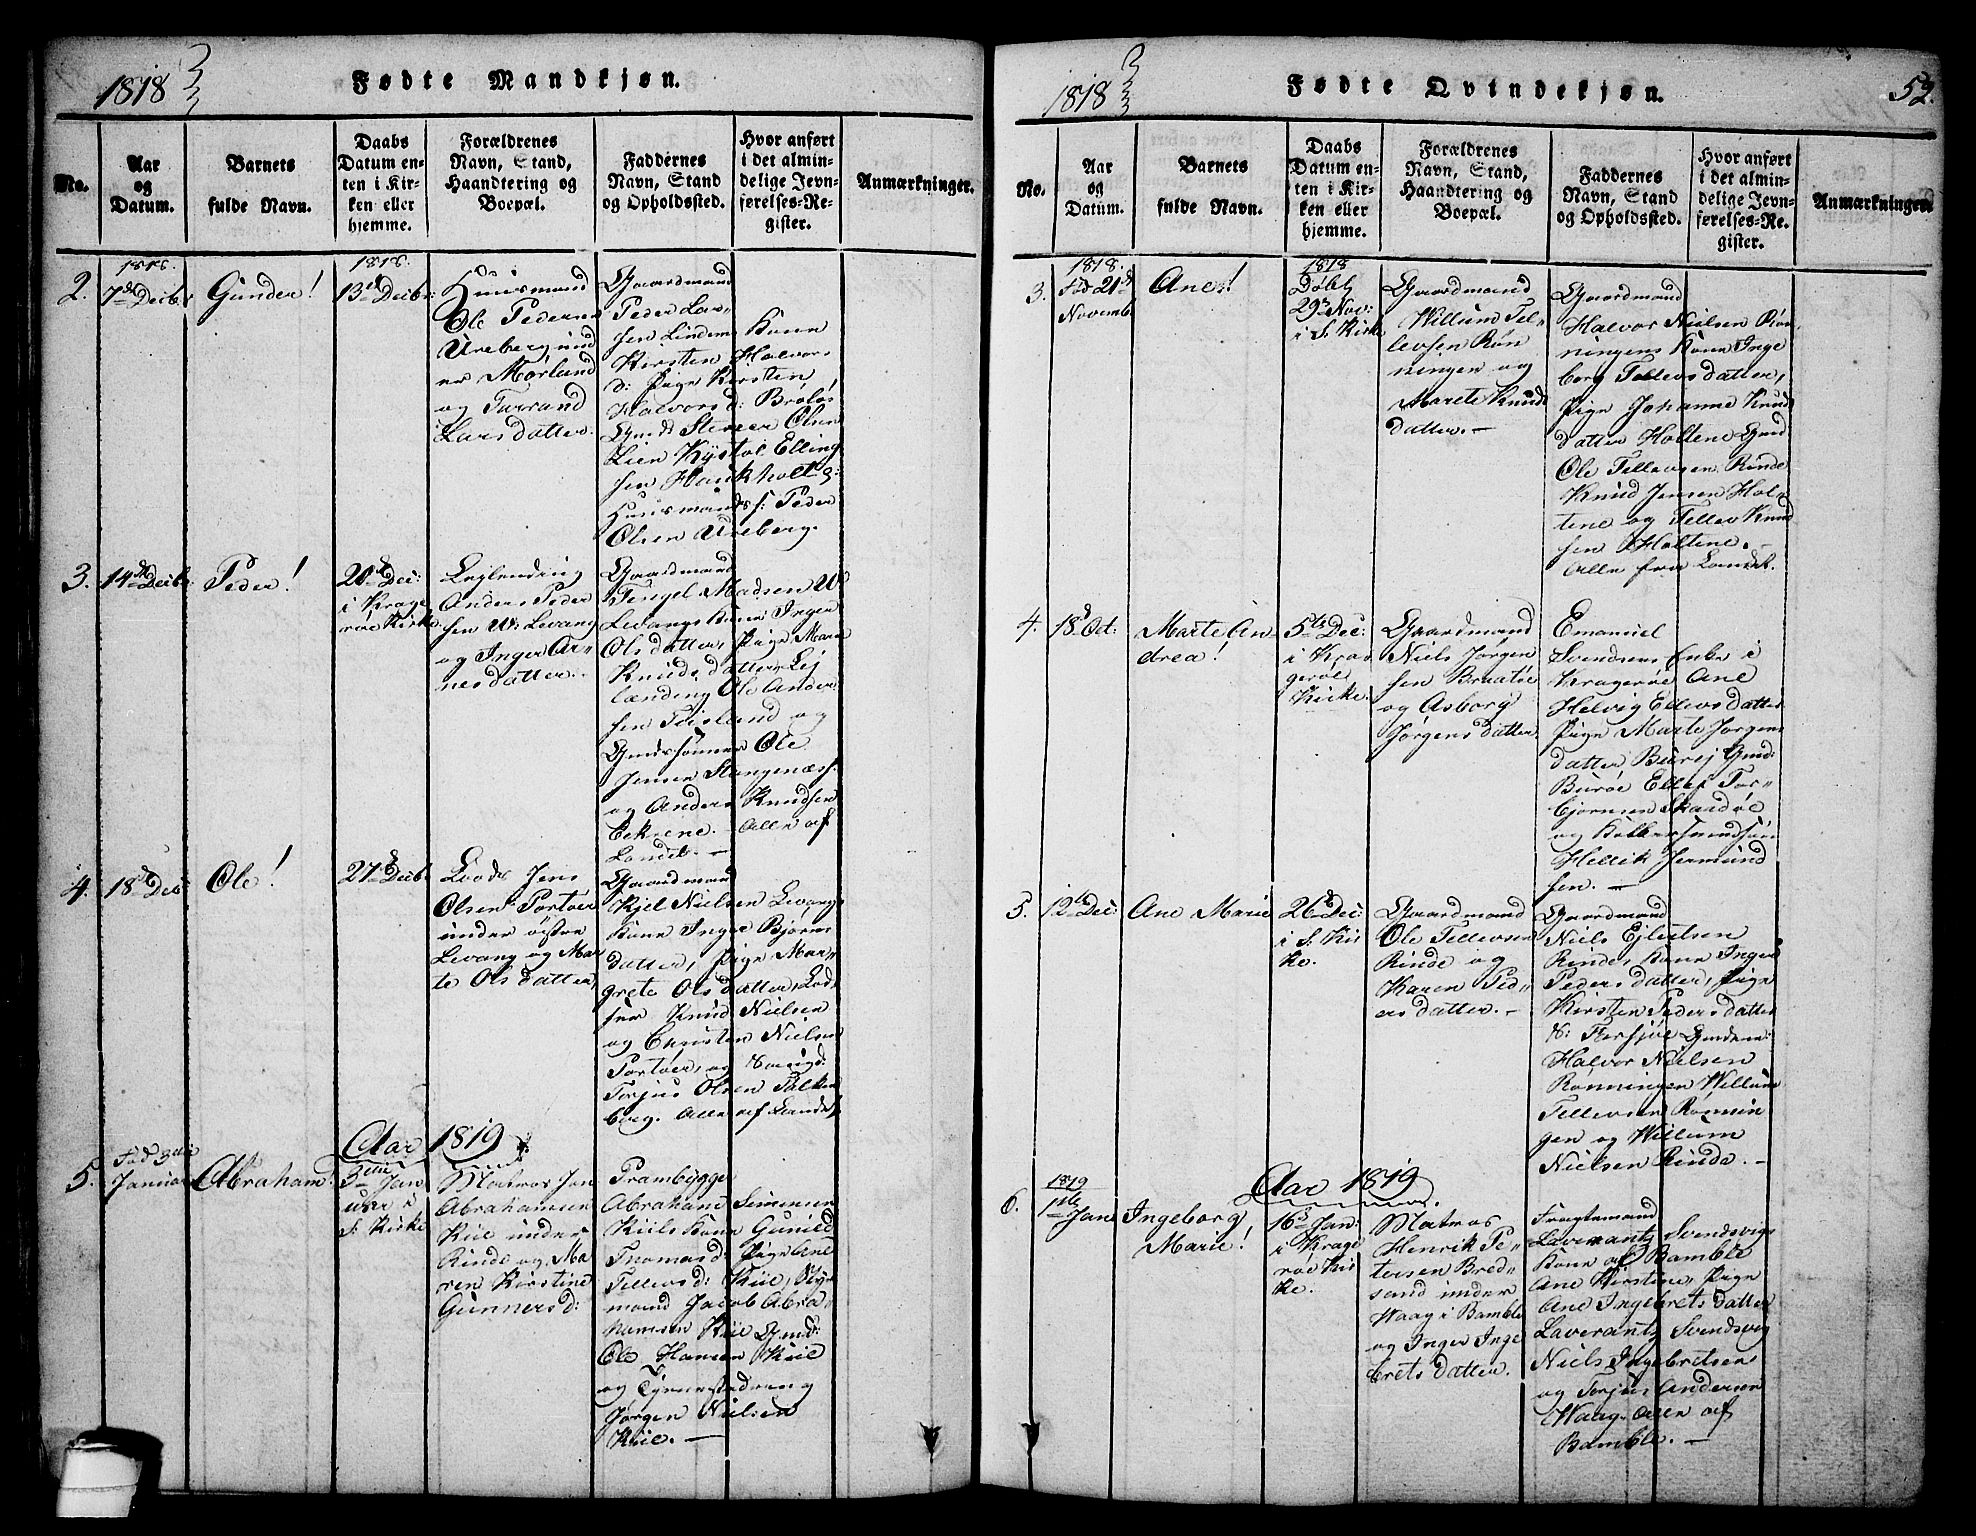 1818
Fødte Mandkjøn.
No.
Aar
og
Datum.
Barnets
fulde Navn.
Daabs
Datum en-
ten i Kir-
ken eller
hjemme.
Forældrenes
Navn, Stand,
Haandtering og
Boepæl.
Faddernes
Navn, Stand
og Opholdssted.
Hvor anført
i det almin-
delige Jevn-
førelses-Re-
gister.
Anmærkninger.
2.
1818.
7de Decbr
Gunder!
1818.
13de Decbr:
Huusmand
Ole Peders
Ureberg und
er Mørland
og Turrand
Larsdatter
Gaardmand
Peder Lar-
sen Lindem Kone
Kirsten Halvors
d: Pige Kirsten
Halvorsd: Brøløs
Gmds Steneer Olsen
Lien Kystol Elling
sen Haukholt &
Huusmands s: Peder
Olsen Ureberg.
3.
14de Decbr:
Peder!
20de Dec:
i Krage
røe Kirke.
Leglending
Anders Peder
sen W: Levang
og Inger Ar-
nesdatter.
Gaardmand
Tengel Madsen W:
Levangs Kone Ingen
Olsdatter, Pige Maren
Knudsdatter, Lej
lænding Ole Ander
sen Tøisland og
Gmdssønner Ole
Jensen Stangenæs
og Anders Knudsen
Eekene. Alle af
Landet. —
4.
18de Dec:
Ole!
27de Decb:
Lods Jens
Olsen Portøer
under østre
Levang og Mar
te Olsdatter,
Gaardmand
Kjel Nielsen Levangs
Kone Inger Bjørns
datter, Pige Mar-
grete Olsdatter, Lod
ser Knud Nielsen
og Christen Nielsen
Portøer, og
Torjus Olsen Falken
borg. Alle af Landet
Aar 1819
5.
Fød 3die
Januar
Abraham!
3die Jan
uar i
S. Kirke
Matros Jon
Abrahamsen
Kiil under
Rinde og Ma
ren Kirstine
Gunnersd:
Prambygger
Abraham Simensen
Kiils Kone Gunild
Thomasd: Pige Ane
Tellevsd: Kiil, Styr
mand Jacob Abra
hamsen Kiil Gmd:
Ole Hansen Kiil
og
Jørgen Nielsen
Kiil. —
1818
Fødte Qvindekjøn.
52.
No.
Aar
og
Datum.
Barnets
fulde Navn.
Daabs
Datum en-
ten i Kir-
ken eller
hjemme.
Forældrenes
Navn, Stand,
Haandtering og
Boepæl.
Faddernes
Navn, Stand
og Opholdssted.
Hvor anført
i det almin-
delige Jevn-
førelses-Re-
gister.
Anmærkninger.
3.
1818.
Fød 21de
Novemb.
Ane!
1818
Døbt
29de Nov:
i S. Kirke
Gaardmand
Willum Tel-
levsen Røn
ningen og
Marete Knuds
datter. —
Gaardmand
Halvor Nielsen Røn
ningens Kone Inge
borg Tellevsdatter,
Pige Johanne Knuds
datter Holtene Gmd
Ole Tellevsen Rinde
Knud Jensen Hol-
tene og Tellev Knud
sen Holtene. —
Alle fra Landet.
4.
18d Oct:
Marte An-
drea!
5te Dec:
i Kra
gerøe
Kirke.
Gaardmand
Niels Jørgen
sen Braatøe
og Asborg
Jørgensdatter
Emanuel
Svendsens Enke i
Kragerøe Ane
Helvig Ellevsdatter
Pige Marte Jørgens
datter Burøj Gmd:
Burøe Ellef Tor-
bjørnsen Skarsøe
og
Hellik Jermund
sen. —
5.
12te Dec:
Ane Marie
26de Dec:
i S. Kir
ke.
Gaardmand
Ole Tellevsen
Rinde og
Karen Ped-
ersdatter. —
Gaardmand
Niels Ejlertsen
Rindes Kone Inger
Pedersdatter, Pige
Kirsten Pedersdatter
Gmdene:
Halvor Nielsen
Rønningen Willum
Tellevsen Rønnin
gen og Willum
Nielsen Rinde. —
Aar 1819
6.
1819
1ste Jan:
Ingeborg
Marie!
16de Jan:
i Krage
røe Kir
ke.
Matros
Henrik Pe-
tersen Bred-
sand under
Waag i Bamble
og Inger Inge
bretsdatter.
Fragtemand
Laverantz Svendsvigs
Kone af Bamble
Ane Kirstine, Pige
Ane Ingebretsdatter
Laverantz Svendsvig
Niels Ingebretsen
og Torjus Andersen
Waag. Alle af
Bamble. —